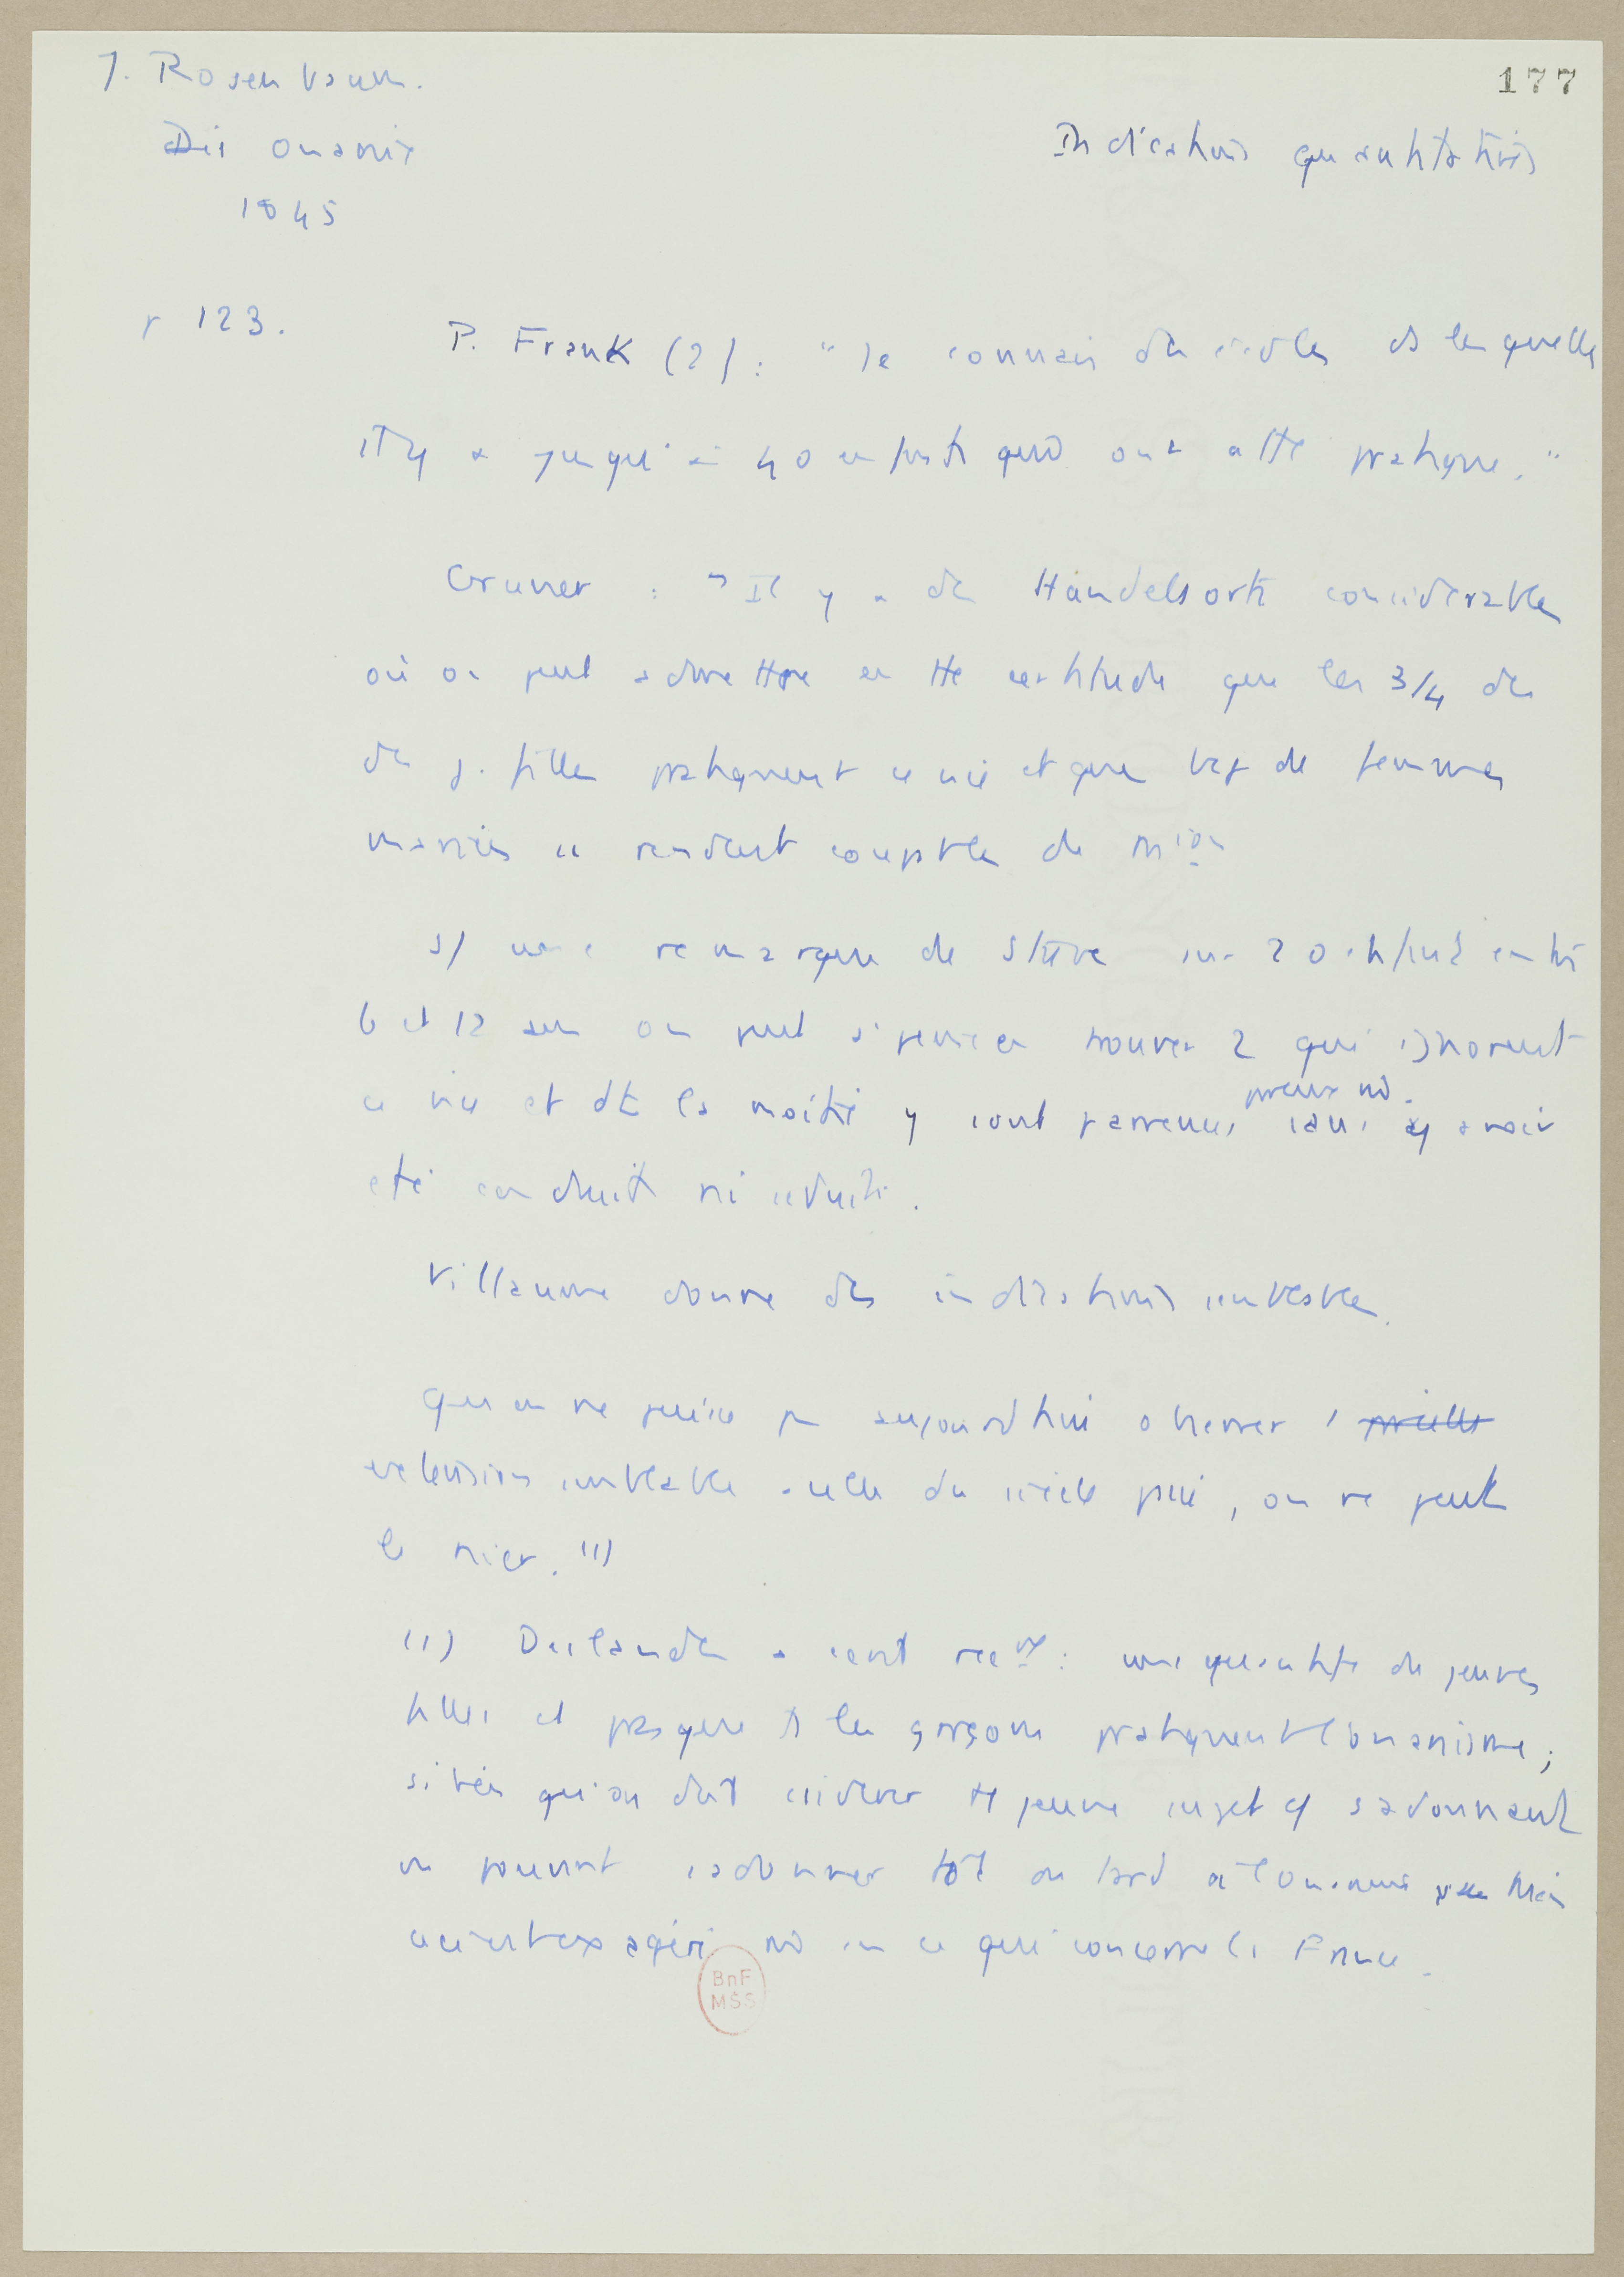 J. Rosenbaum.
177
Die Onanie
Indications quantitatives
1845
p 123.
P. Frank (2) : " Je connais des écoles ds lesquelles
il y a jusqu'à 40 enfants qui ont cette pratique."
Gruner : " Il y a des Handelsorte considérables
où on peut admettre en tte certitude que les 3/4 des
des j. filles pratiquent ce vice et que bcp de femmes
mariées se rendent coupables de m^on
s/ une remarque de Stüve sur 20 enfants entre
6 et 12 ans on peut à peine en trouver 2 qui ignorent
ce vice et dt la moitié y sont parvenus sans y avoir
été conduits ni séduits.
Villaume donne des indications semblables.
Qu'on ne puisse pas aujourd'hui observer
extension semblable à celle du siècle passé, on ne peut
le nier. (1)
(1) Deslandes a écrit : une quantité de jeunes
filles et presque ts les garçons pratiquent l'onanisme ;
si bien qu'on doit considérer tt jeune sujet cô s'adonnant
ou pouvant s'adonner tôt ou tard à l'onanisme
ceci est exagéré en ce qui concerne la France.
BnF
MSS